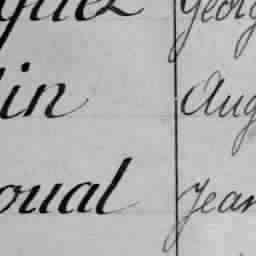 quez Georg
lin Aug
oual Jean